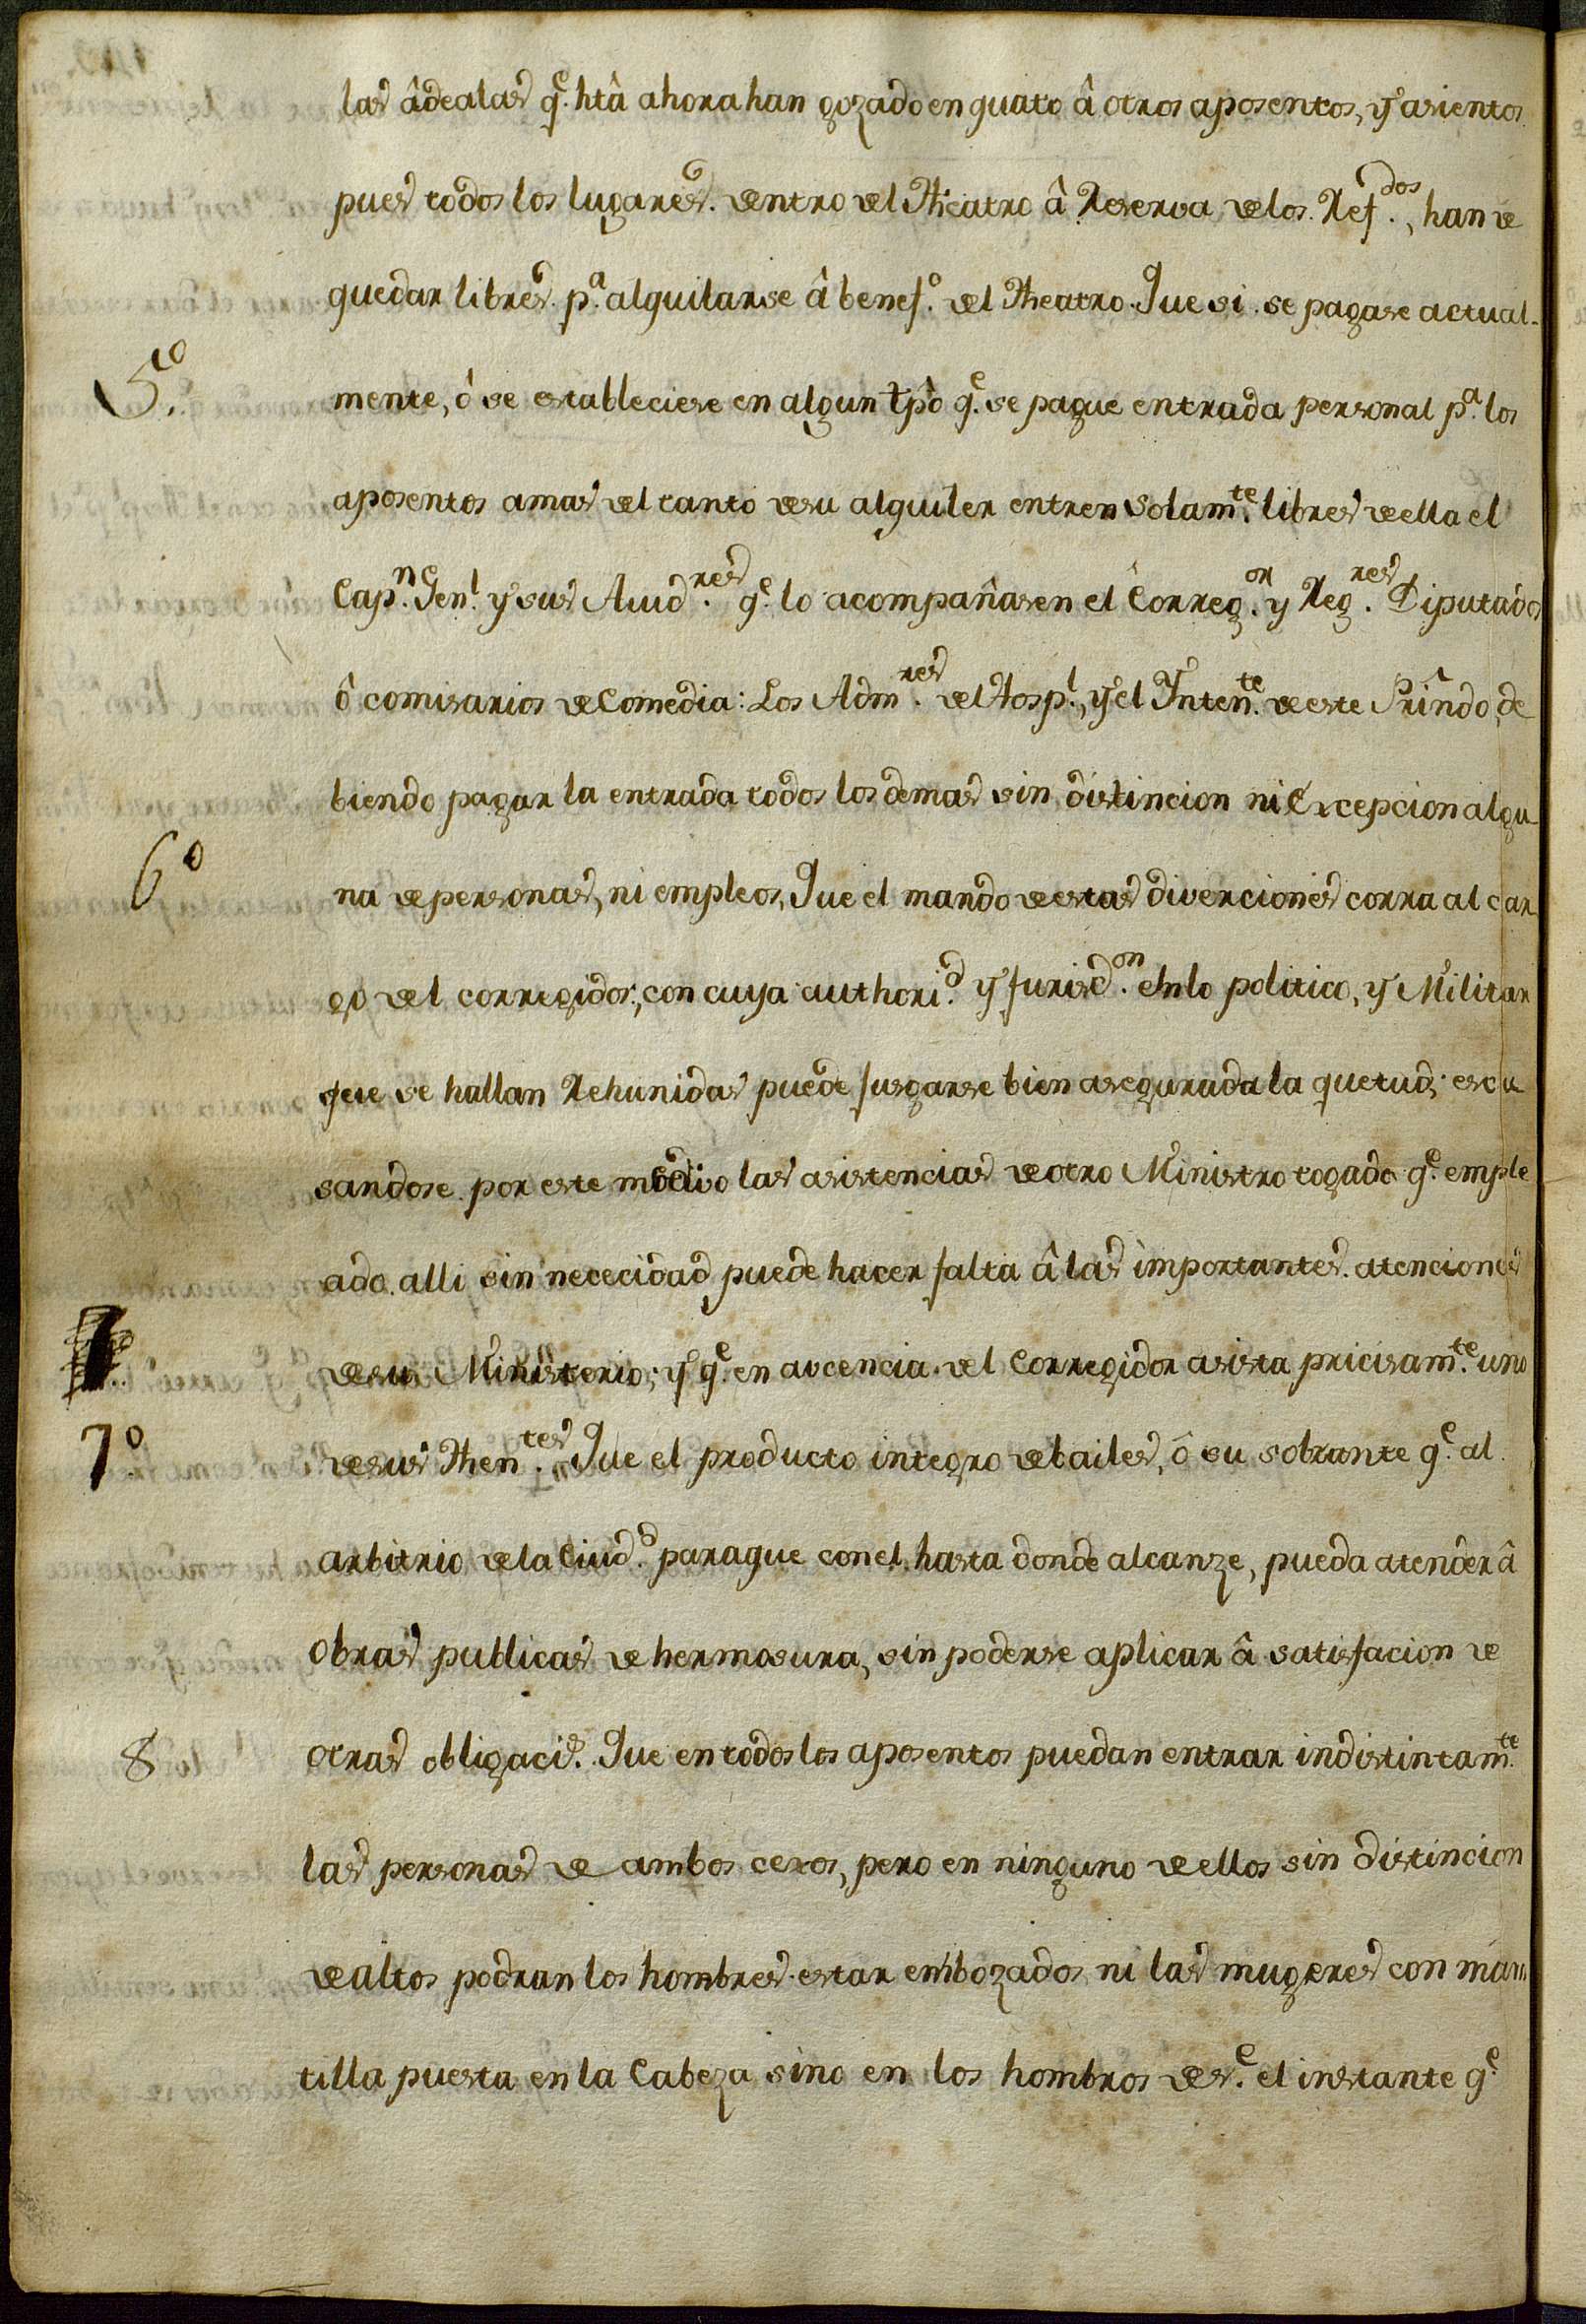 las âdealas q.e htâ ahora han gozado en quato â otros aposentos, y asientos
pues todos los lugares. dentro del Theatro â Reserva de los. Ref.dos, han de
quedar libres. p.a alquilarse â benef.o del Theatro. Que si se pagase actual-
5.o mente, ò se estableciese en algun tpô q.e se pague entrada personal p.a los
aposentos amas del tanto desu alquiler entren solam.te libres deella el
Cap.n Gen.l y sus Auid.res q.e lo acompañasen el Correg.or y Reg.res Diputados
ô comisarios de Comedia: Los Adm.res del Hosp.l, y el Ynten.te de este Prîndo, de
biendo pagar la entrada todos los demas sin distincion ni Excepcion algu-
6o na de personas, ni empleos, Que el mando de estas diverciones corra al car
go del corregidor, con cuya authori.d y Jurisd.on enlo politico, y Militar
que se hallan Rehunidas puede Jusgarse bien asegurada la quetud; escu
sandose por este medio las asistencias de otro Ministro togado q.e emple
ado alli sin nececidad puede hacer falta â las importantes. atenciones
desu Ministerio; y q.e en avcencia del Corregidor asista pricisam.te uno
7o desus Then.tes Que el producto integro de bailes, ô su sobrante q.e al
arbitrio de la Ciud.d paraque con el hasta donde alcanze, pueda atender â
obras publicas de hermosura, sin poderse aplicar â satisfacion de
8 otras obligaci.s Que en todos los aposentos puedan entrar indistintam.te
las personas de ambos cexos, pero en ninguno de ellos sin distincion
de altos podran los hombres estar embozados ni las mugeres con man
tilla puesta en la Cabeza sino en los hombros des.e el instante q.e